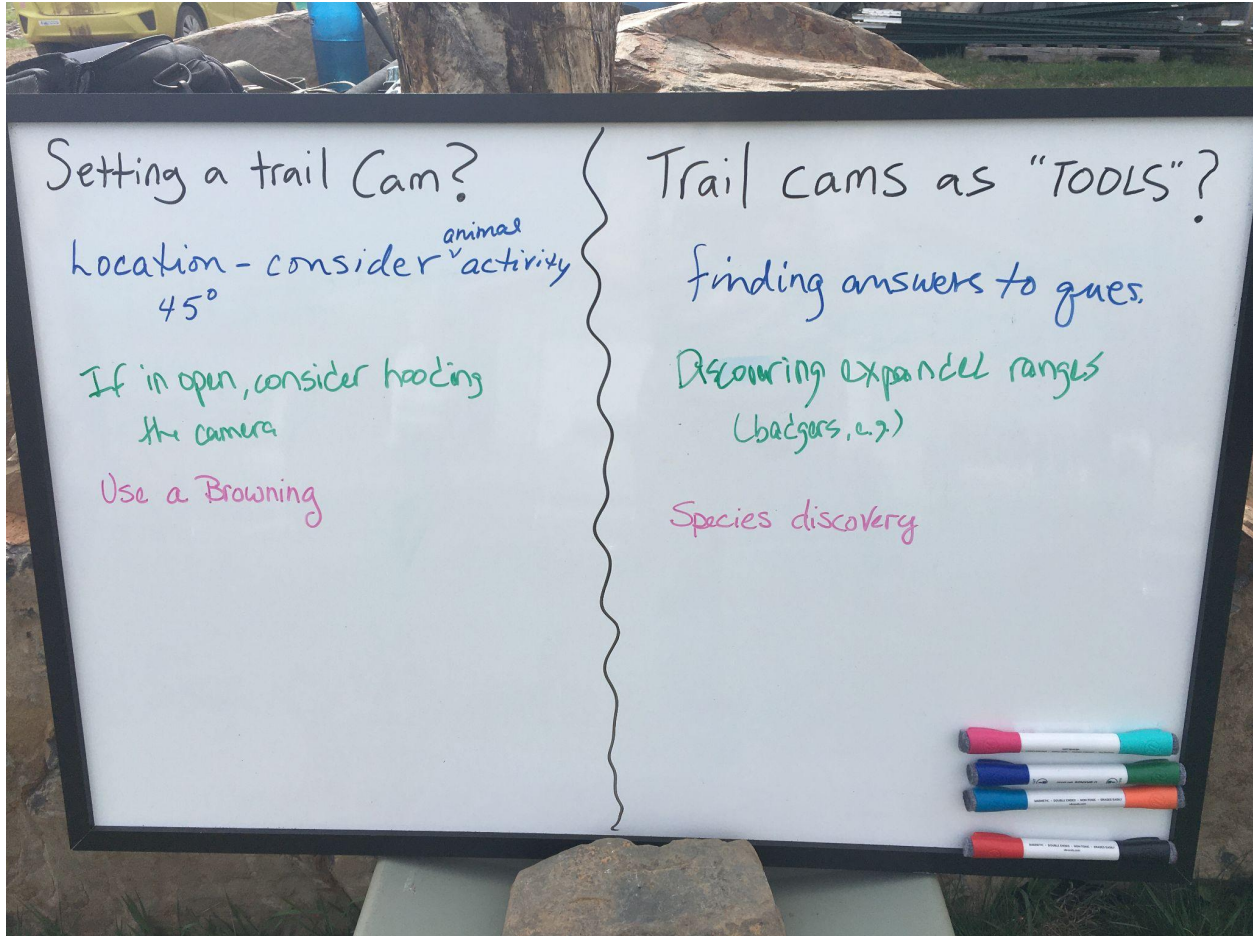 Setting a trail Cam?
Location - consider animal activity
45°
If in open, consider hooding
the camera
Use a Browning
Trail cams as "TOOLS"?
finding answers to ques.
Discovering expanded ranges
(badgers, e.g.)
Species discovery